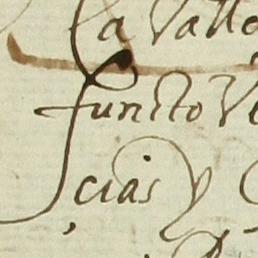 la Valle
functo Ve
cias y